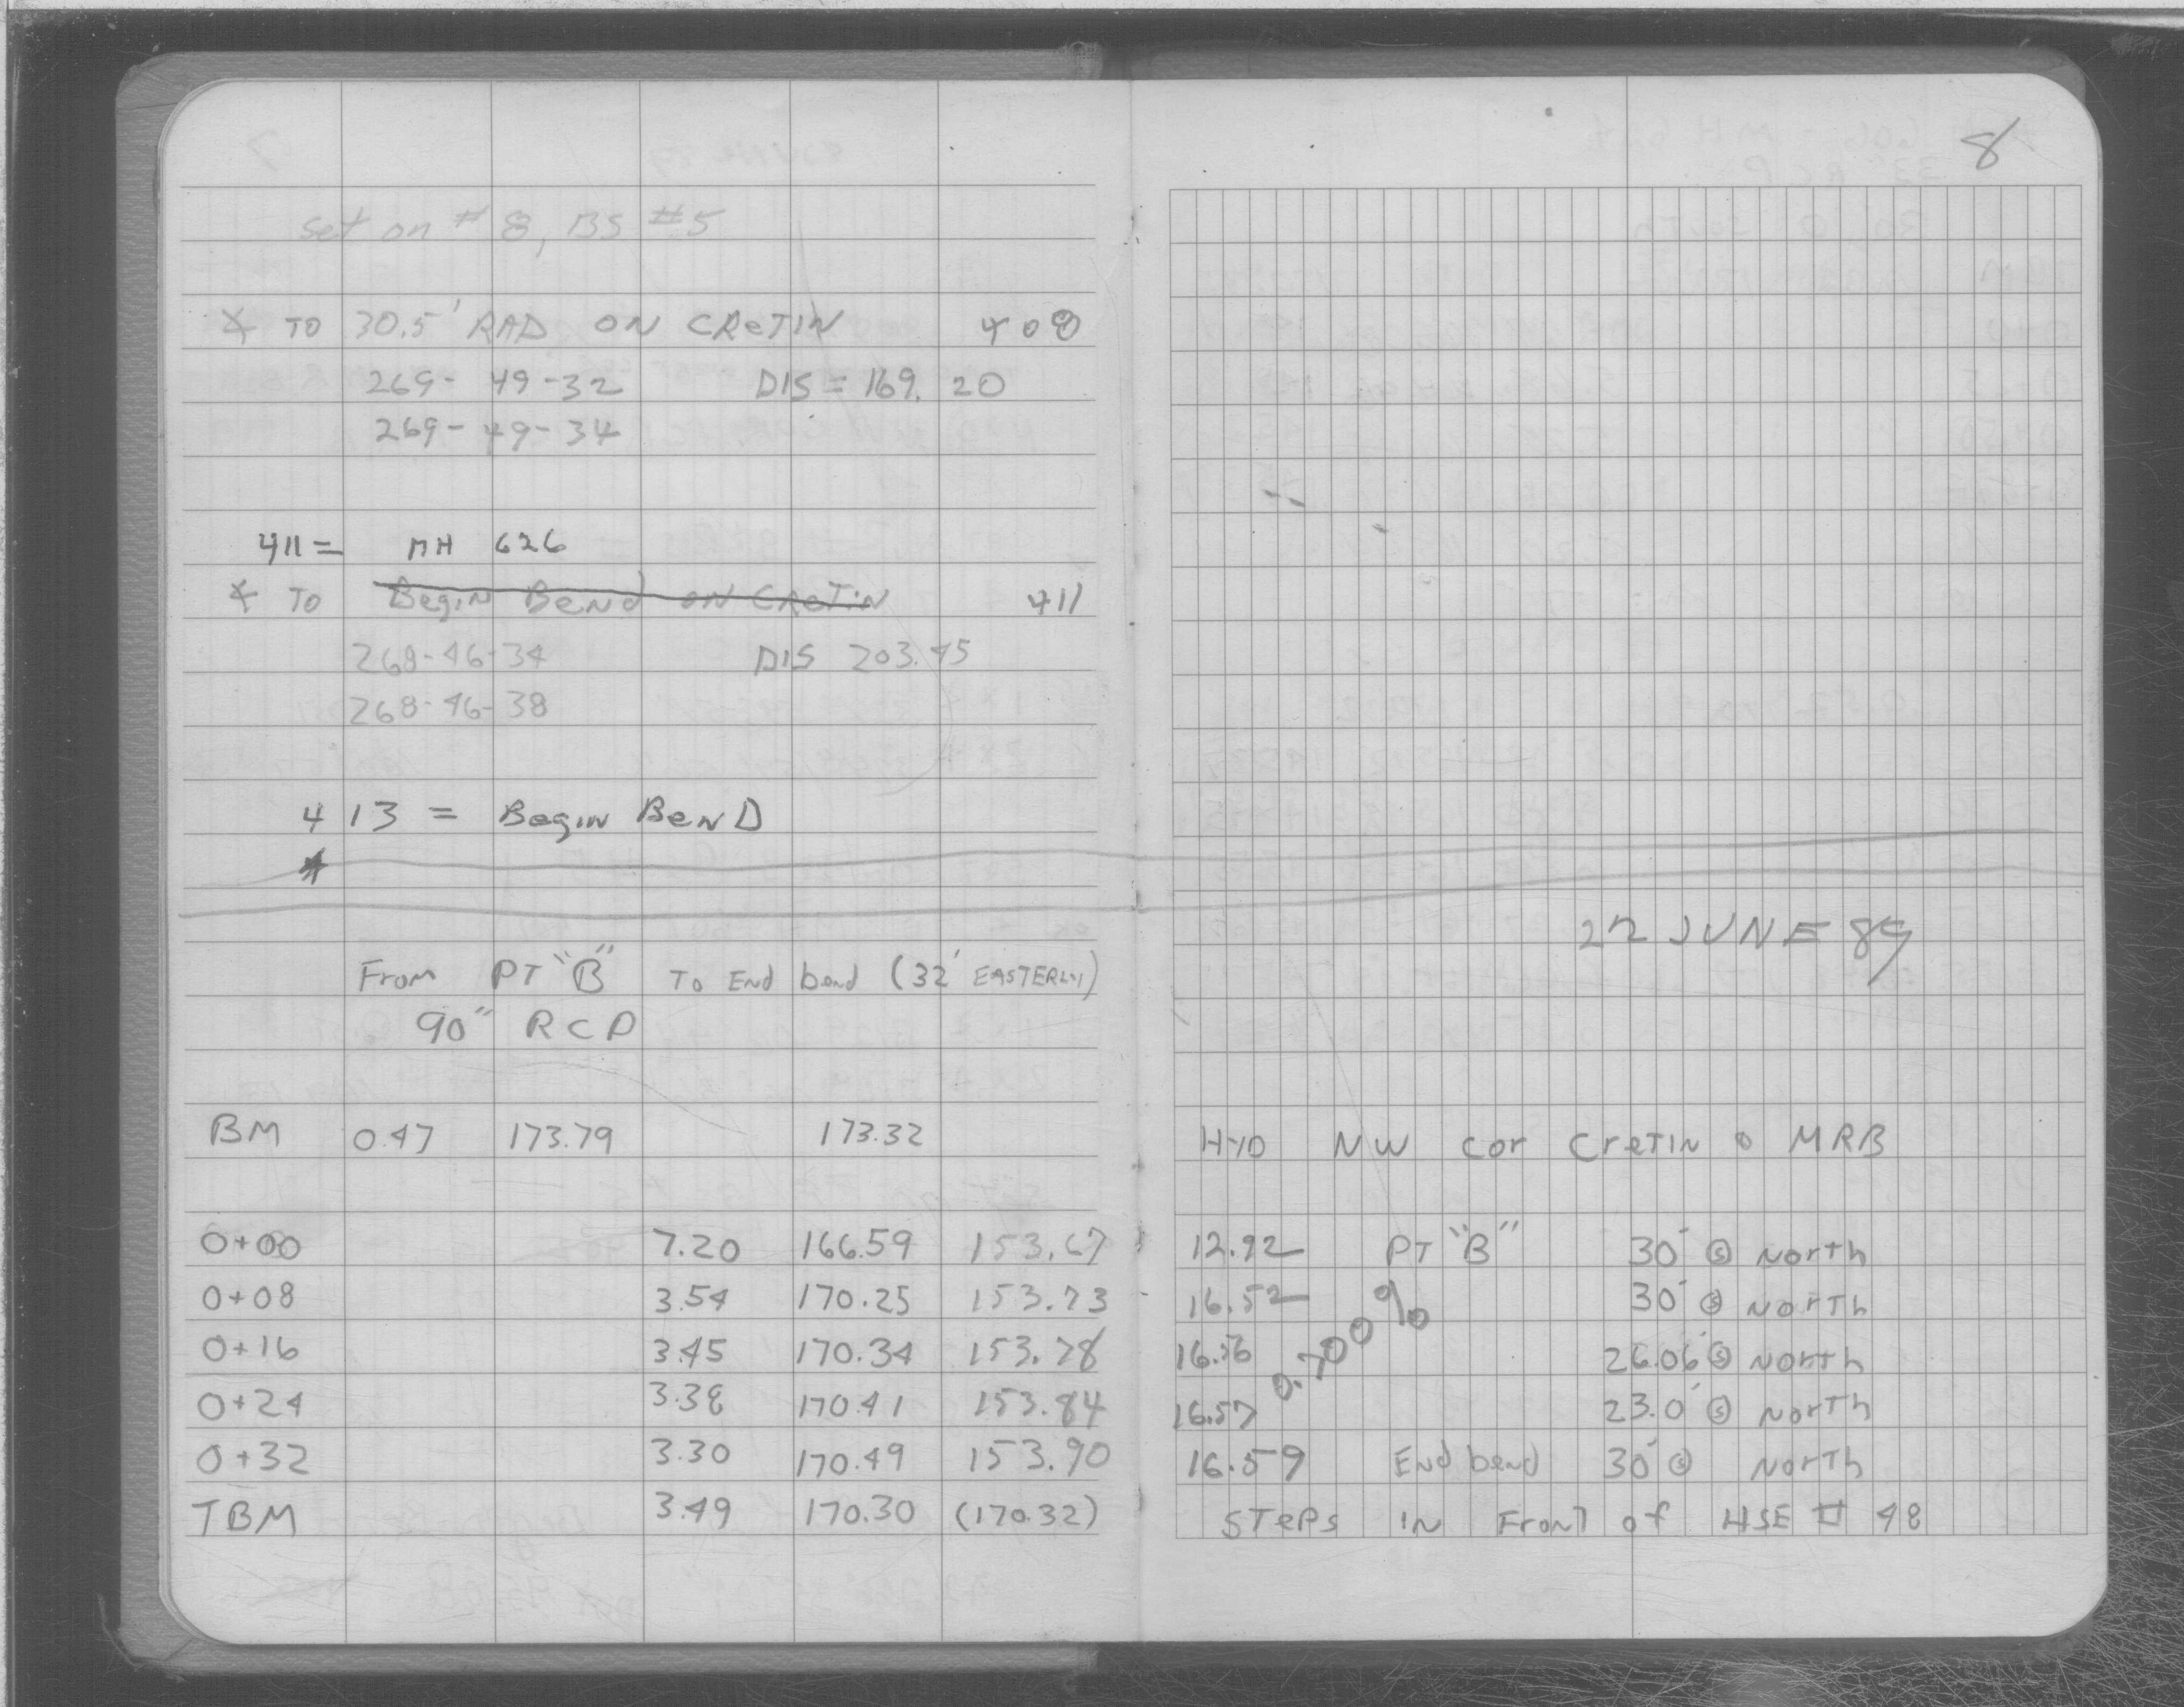 8
set on #8, BS #5
∡ TO 30.5' RAD ON CRETIN 408
269-49-32 DIS = 169.20
269-49-34
411 = MH 626
∡ TO Begin Bend ON CRETIN 411
268-46-34 DIS 203.45
268-46-38
413 = Begin BenD
22 JUNE 89
From PT "B" TO End bend (32' EASTERLY)
90" RCP
BM 0.47 173.79 173.32 HYD NW cor CRETIN & MRB
0+00 7.20 166.59 153.67 12.92 PT "B" 30' @ North
0+08 3.54 170.25 153.73 16.52 30' @ North
0+16 3.45 170.34 153.78 16.56 26.06' @ North
0.700%
0+24 3.38 170.41 153.84 16.57 23.0' @ North
0+32 3.30 170.49 153.90 16.59 End bend 30' @ North
TBM 3.49 170.30 (170.32) STEPS IN Front of HSE # 48